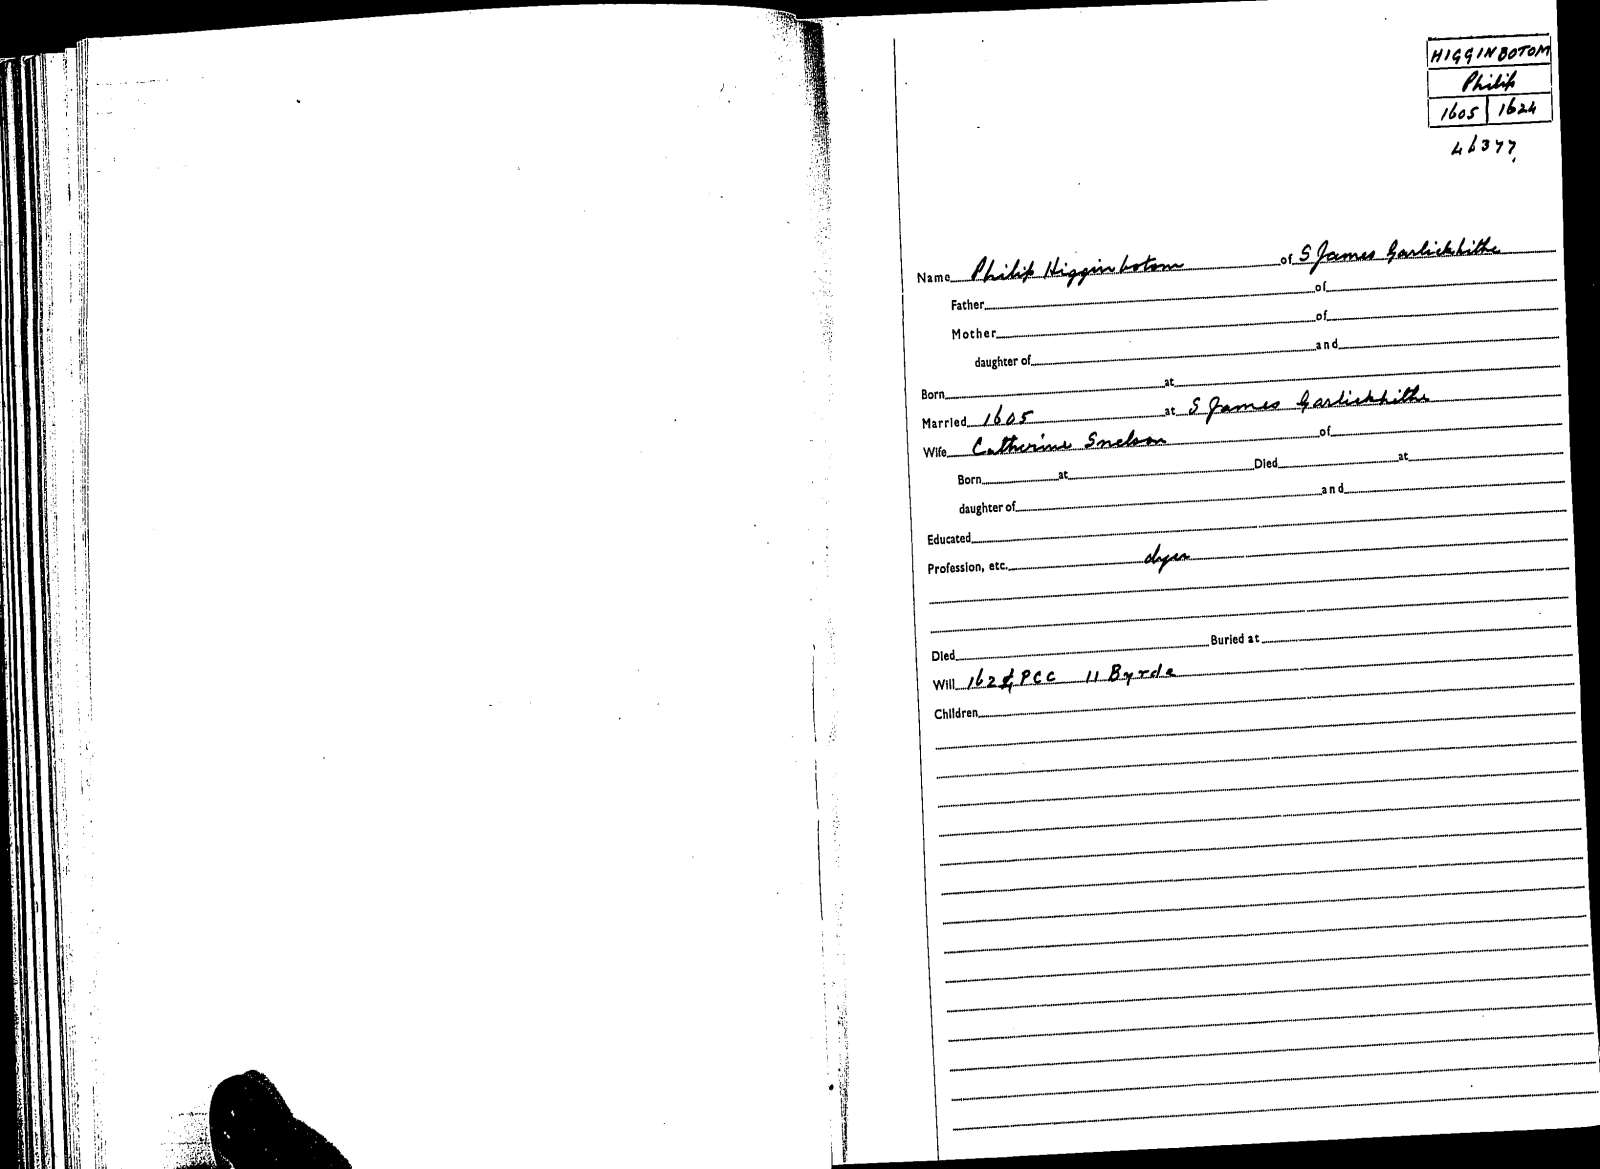 HIGGINBOTOM
Philip
1605 1624
46377
Name Philip Higginbotom of S James Garlickhithe
Father of
Mother of
daughter of and
Born at
Married 1605 at S James Garlickhithe
Wife Catherine Snelson of
Born at Died at
daughter of and
Educated
Profession, etc. dyer
Died Buried at
Will 1624 PCC 11 Byrde
Children